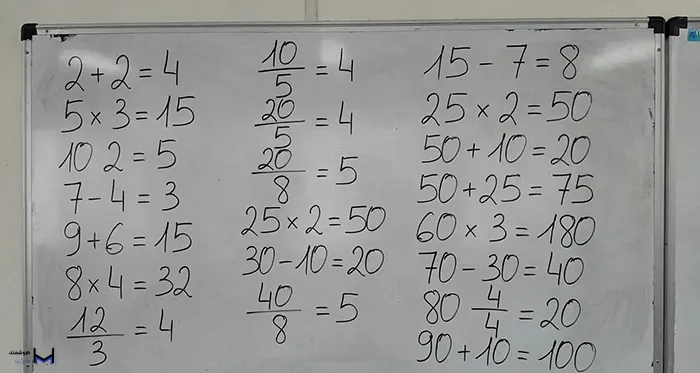 2 + 2 = 4
5 × 3 = 15
10 2 = 5
7 - 4 = 3
9 + 6 = 15
8 × 4 = 32
12/3 = 4
10/5 = 4
20/5 = 4
20/8 = 5
25 × 2 = 50
30 - 10 = 20
40/8 = 5
15 - 7 = 8
25 × 2 = 50
50 + 10 = 20
50 + 25 = 75
60 × 3 = 180
70 - 30 = 40
80 4/4 = 20
90 + 10 = 100
هوشمند